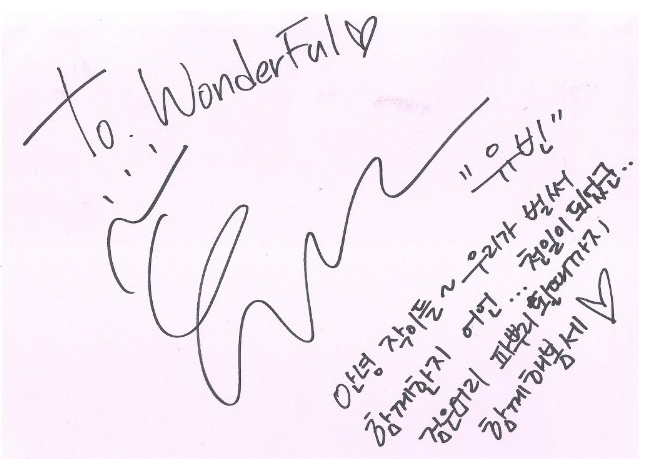 To. WonderFul♡
"유빈"
안녕 작이들~ 우리가 벌써
함께한지 어언... 천일이 되었군..
검은머리 파뿌리 될때까지
함께해봄세♡